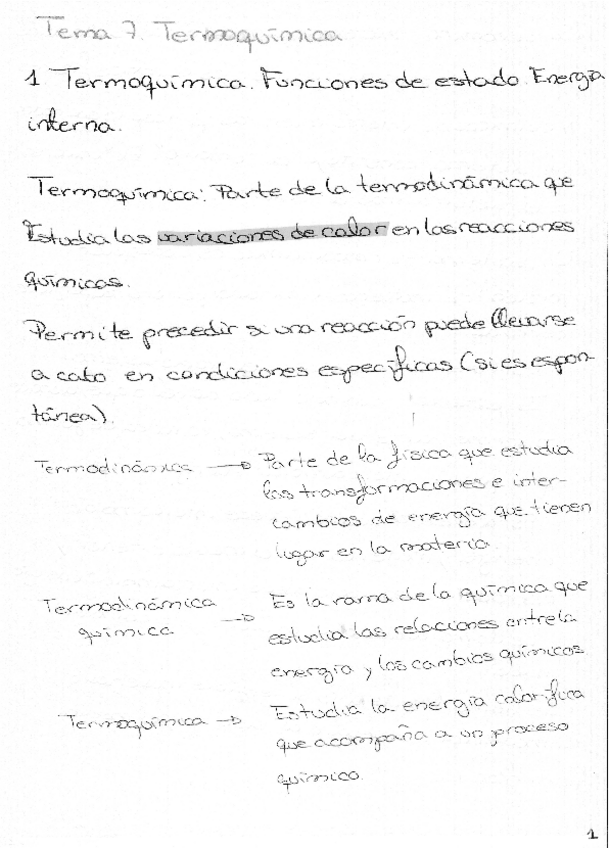 Tema 7. Termoquímica
1 Termoquímica. Funciones de estado. Energía
interna.
Termoquímica: Parte de la termodinámica que
Estudia las variaciones de calor en las reacciones
químicas.
Permite precedir si una reacción puede llevarse
a cabo en condiciones específicas (si es espon-
tánea).
Termodinámica → Parte de la física que estudia
las transformaciones e inter-
cambios de energía que tienen
lugar en la materia
Termodinámica química → Es la rama de la química que
estudia las relaciones entre la
energía y los cambios químicos
Termoquímica → Estudia la energía calorífica
que acompaña a un proceso
químico.
1